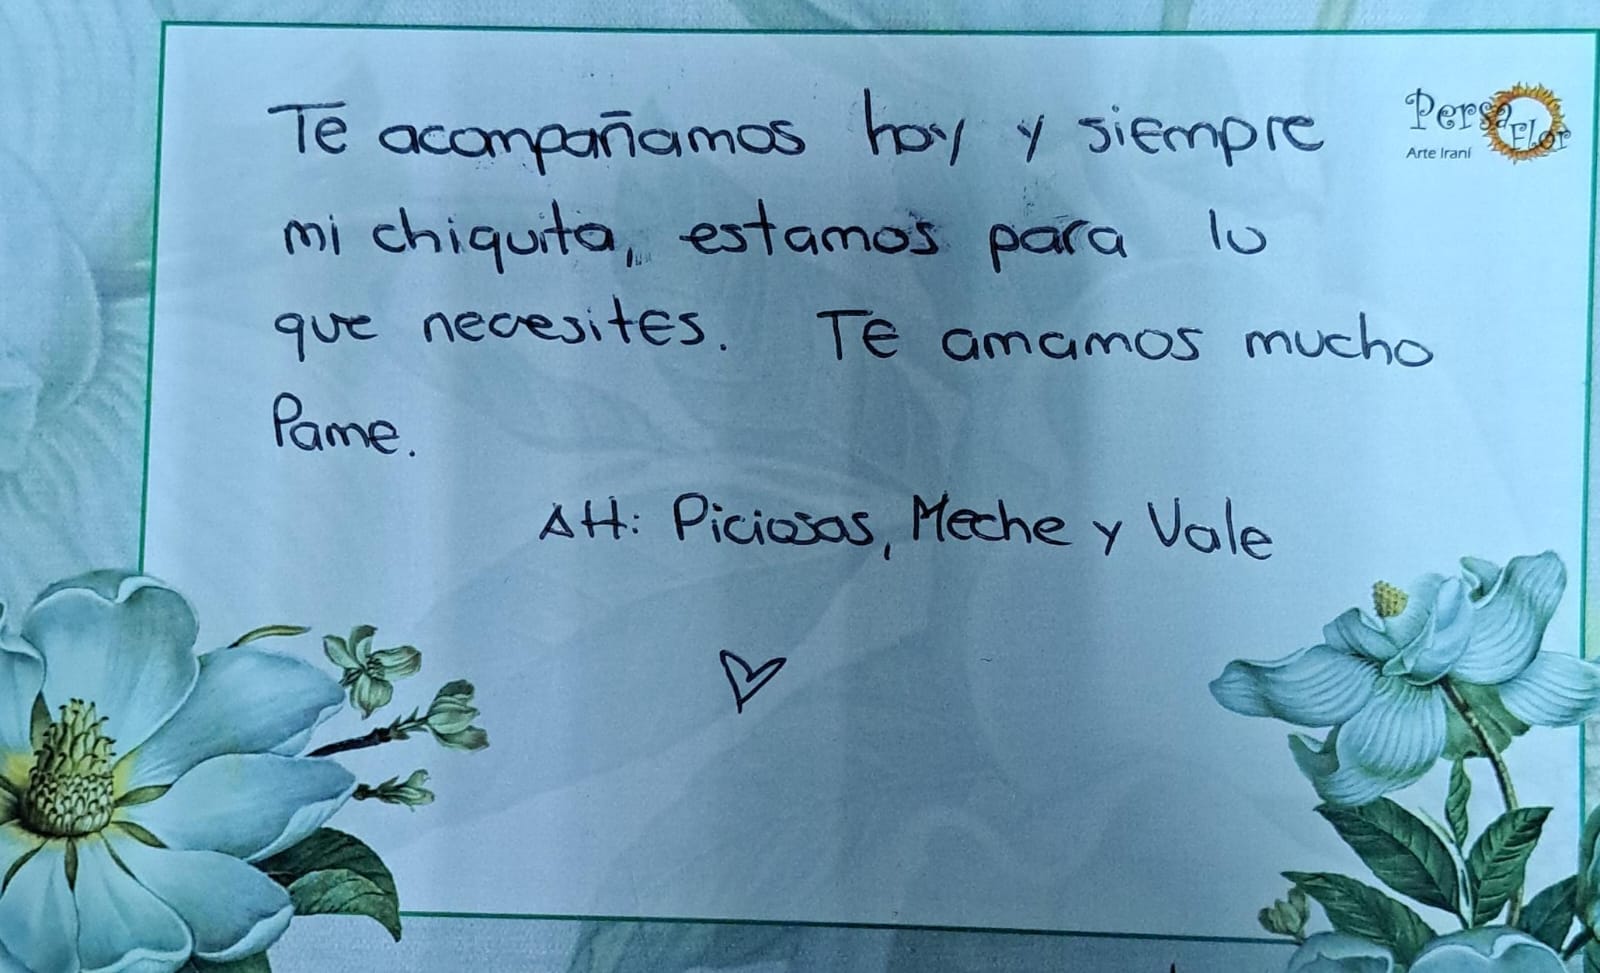 Te acompañamos hoy y siempre
mi chiquita, estamos para lo
que necesites. Te amamos mucho
Pame.
Att: Piciosas, Meche y Vale
Persa Flor
Arte Iraní